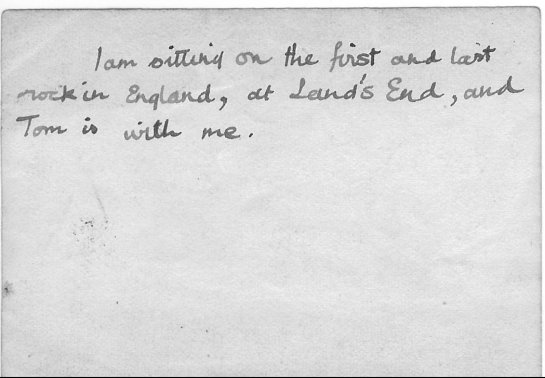 I am sitting on the first and last
rock in England, at Land's End, and
Tom is with me.